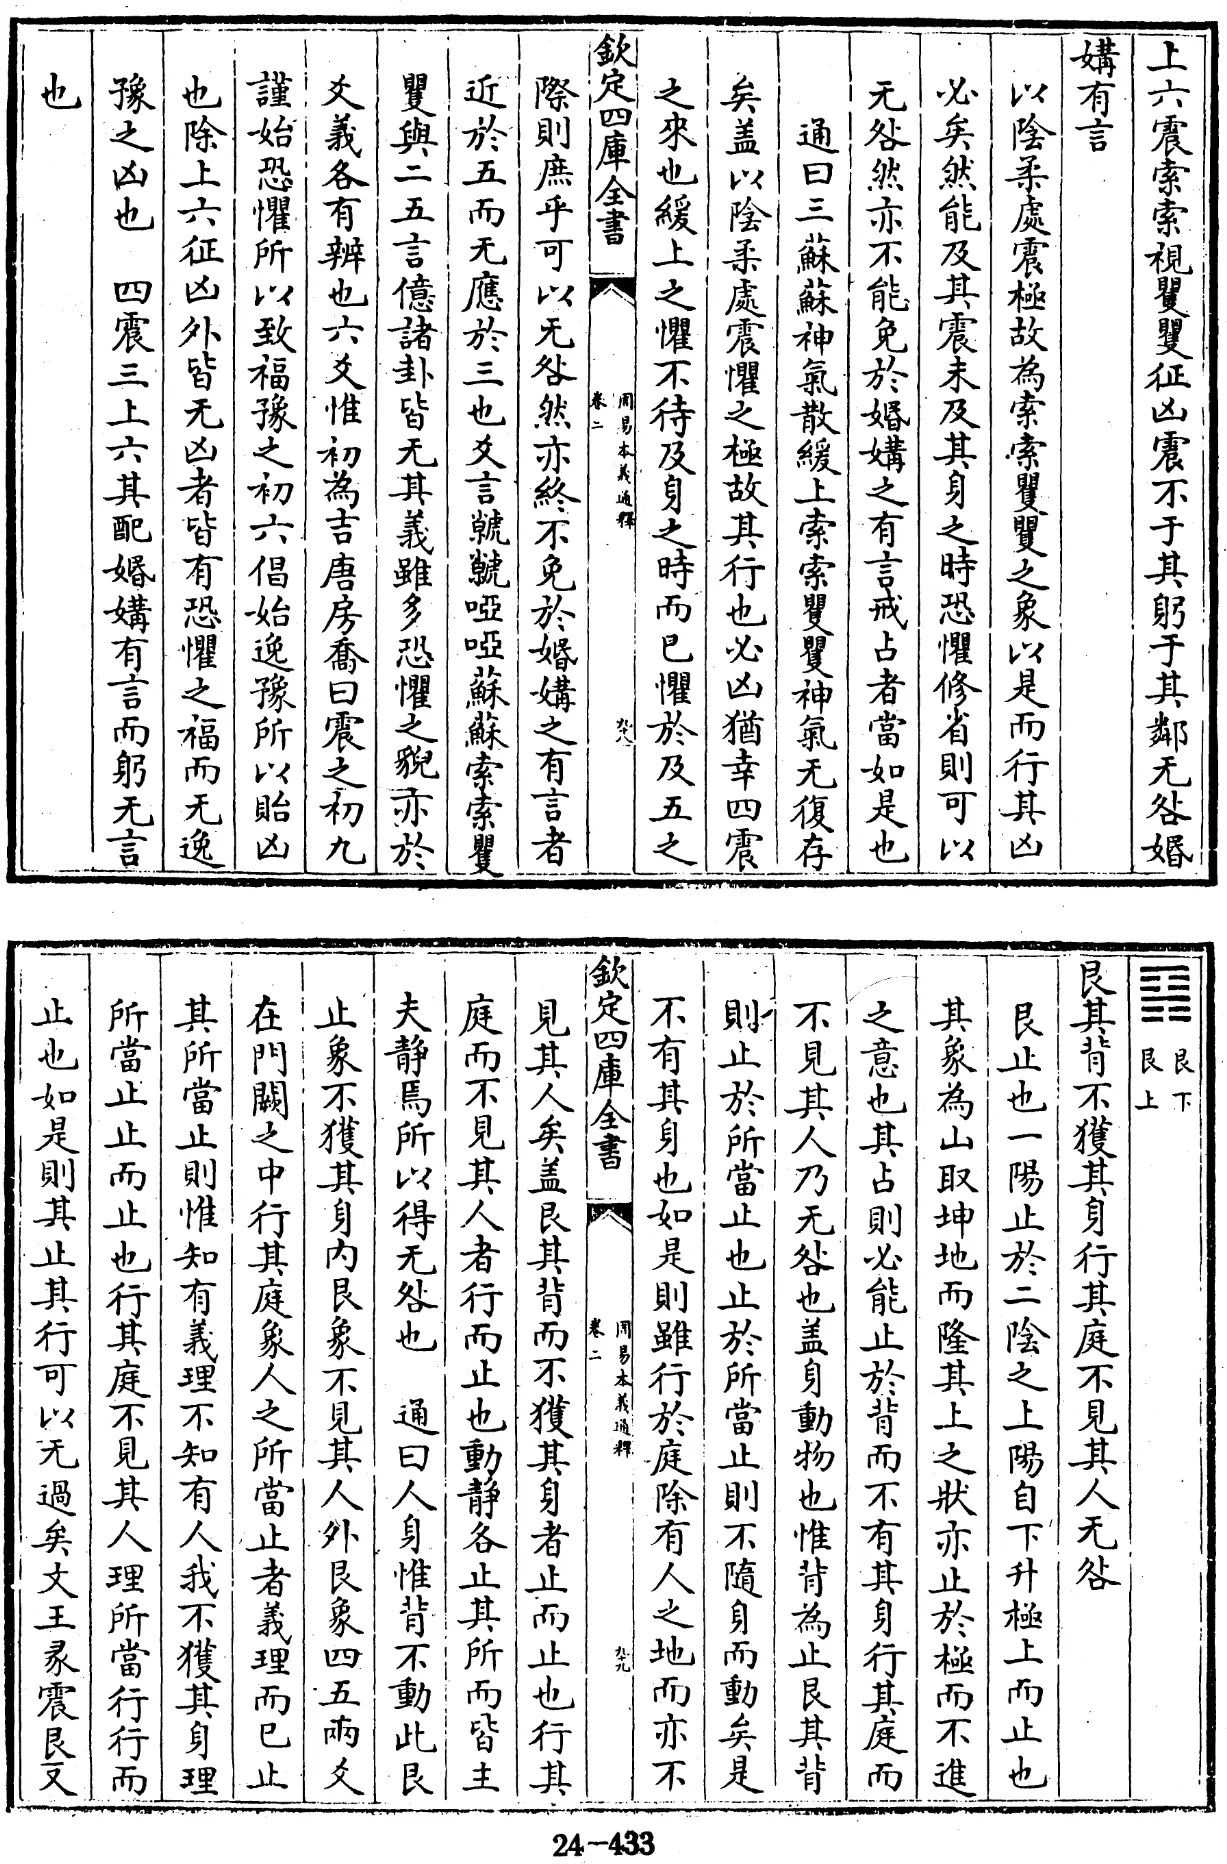 上六震索索視矍矍征凶震不于其躬于其鄰无咎婚
媾有言
以陰柔處震極故為索索矍矍之象以是而行其凶
必矣然能及其震未及其身之時恐懼修省則可以
无咎然亦不能免於婚媾之有言戒占者當如是也
通曰三蘇蘇神氣散緩上索索矍矍神氣无復存
矣盖以陰柔處震懼之極故其行也必凶猶幸四震
之來也緩上之懼不待及身之時而已懼於及五之
欽定四庫全書
周易本義通釋
卷二
九八
際則庶乎可以无咎然亦終不免於婚媾之有言者
近於五而无應於三也爻言虩虩啞啞蘇蘇索索矍
矍與二五言億諸卦皆无其義雖多恐懼之貌亦於
爻義各有辨也六爻惟初為吉唐房喬曰震之初九
謹始恐懼所以致福豫之初六倡始逸豫所以貽凶
也除上六征凶外皆无凶者皆有恐懼之福而无逸
豫之凶也　四震三上六其配婚媾有言而躬无言
也
艮下
艮上
艮其背不獲其身行其庭不見其人无咎
艮止也一陽止於二陰之上陽自下升極上而止也
其象為山取坤地而隆其上之狀亦止於極而不進
之意也其占則必能止於背而不有其身行其庭而
不見其人乃无咎也盖身動物也惟背為止艮其背
則止於所當止也止於所當止則不隨身而動矣是
不有其身也如是則雖行於庭除有人之地而亦不
欽定四庫全書
周易本義通釋
卷二
九九
見其人矣盖艮其背而不獲其身者止而止也行其
庭而不見其人者行而止也動靜各止其所而皆主
夫靜焉所以得无咎也　通曰人身惟背不動此艮
止象不獲其身內艮象不見其人外艮象四五兩爻
在門闕之中行其庭象人之所當止者義理而已止
其所當止則惟知有義理不知有人我不獲其身理
所當止止而止也行其庭不見其人理所當行行而
止也如是則其止其行可以无過矣文王彖震艮又
24-433